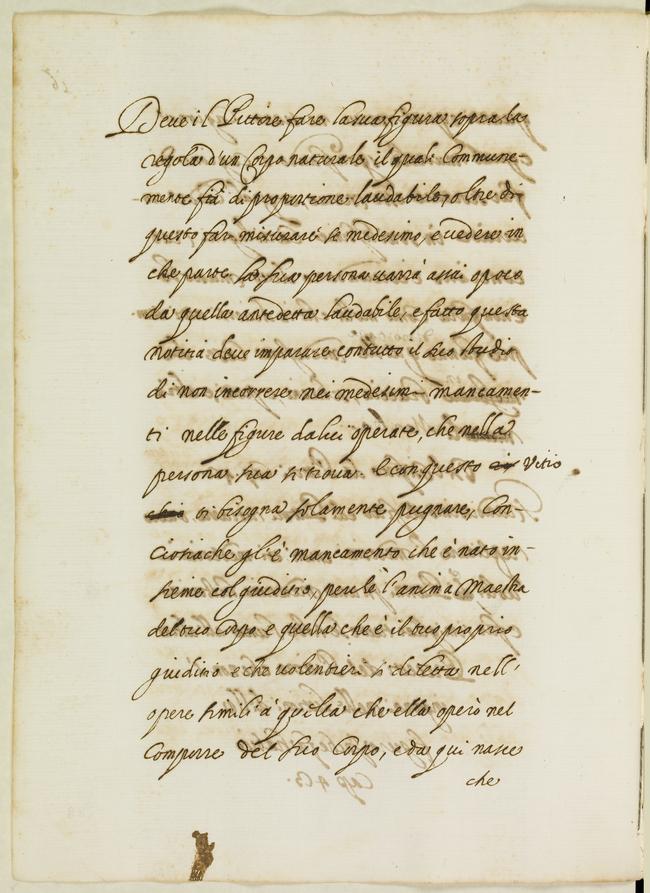 Deve il Pittore fare la sua figura sopra la
regola d'un Corpo naturale il quale Commune-
mente sia di proportione laudabile, oltre di
questo far misurare se medesimo, e vedere in
che parte la sua persona varia assai o poco
da quella antedetta laudabile, e fatto questa
notitia deve imparare con tutto il suo studio
di non incorrere nei medesimi mancamen-
ti nelle figure da lui operate, che nella
persona sua si trova. E con questo vitio
ti bisogna solamente pugnare, Con-
ciosiache gl'è mancamento che è nato in-
sieme col giuditio, perche l'anima Maestra
del tuo Corpo e quella che è il tuo proprio
giuditio e che volentieri si diletta nell'
opere simili à quella che ella operò nel
Comporre del suo Corpo, e da qui nasce
che